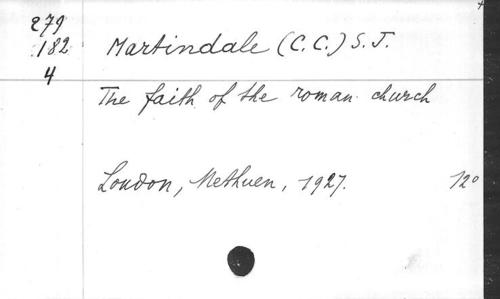 279
182
4
Martindale (C. C.) S. J.
The faith of the roman church
London, Methuen, 1927. 12°